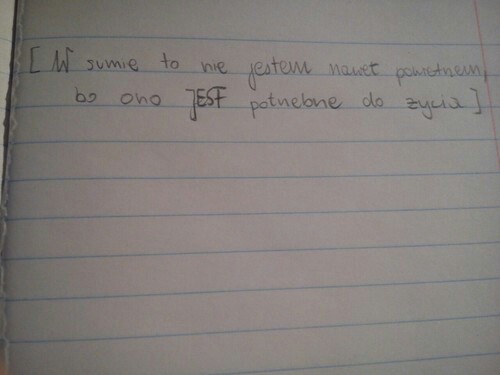 [ W sumie to nie jestem nawet powietrzem,
bo ono JEST potrzebne do życia ]